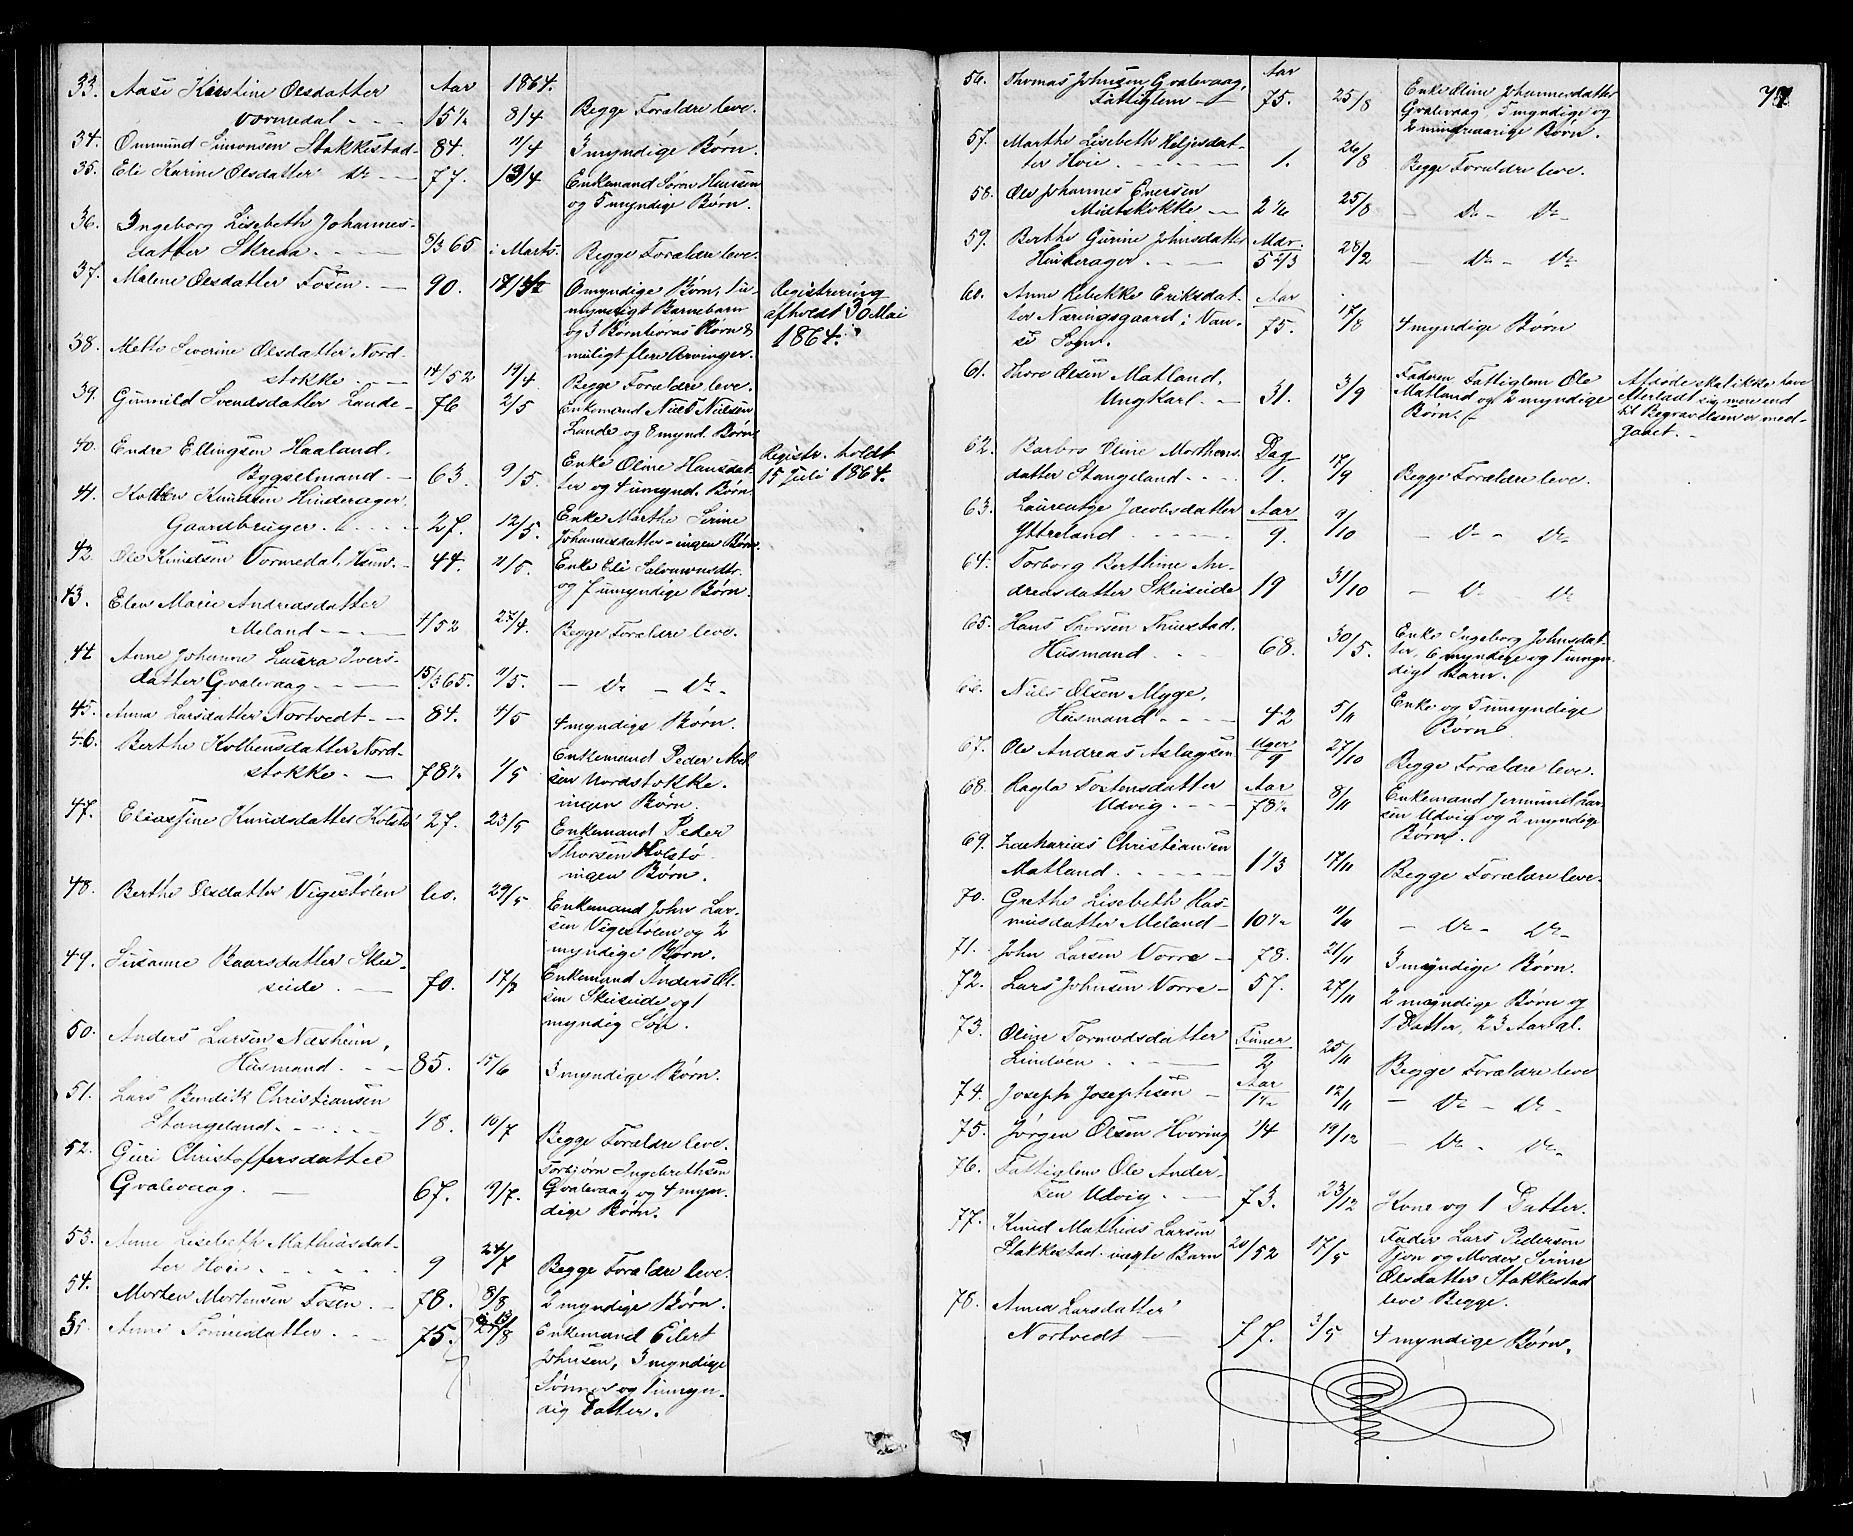 33. Aase Kirstine Olsdatter Aar 1864.
Vormedal - - 15½ 8/4 Begge Forældre leve.
34. Ommund Simonsen Stakkestad- 84. 11/4 3 myndige Børn.
35. Eli Karine Olsdatter Do - 77. 13/4 Enkemand Søren Hansen
og 5 myndige Børn.
36. Ingeborg Lisebeth Johannes-
datter Skreda. - 8/3 65 i Marts. Begge Forældre leve.
37. Malene Olsdatter Fosen. - 90. Omyndige Børn, 1 u-
myndigt Barnebarn
og 3 Børnebørns Børn &
muligt flere Arvinger.
Registrering
afholdt 30 Mai
1864.
38. Mette Severine Olsdatter Nord-
stokke. - 14/52 19/4. Begge Forældre leve.
39. Gunnild Svendsdatter Lande- 76 2/5 Enkemand Niels Nielsen
Lande og 8 mynd. Børn
40. Endre Ellingsen Haaland.
Bygselmand - 63. 9/5. Enke Oline Hansdat-
ter og 4 umynd. Børn
Registr. holdt
15 Juli 1864.
41. Knudsen Hinderager.
Gaardbruger. - 27. 12/5. Enke Marthe Serine
Johannesdatter - ingen Børn.
42. Ole Knudsen Vormedal, Huusm. - 44. 11/5. Enke Eli Salomonsdtr.
og 7 umyndige Børn.
43. Elen Marie Andreasdatter
Meland - - - 4/52 27/4. Begge Forældre leve.
44. Anne Johanne Laura Ivers-
datter Gvalevaag - 15/365. 11/5. - Do - Do -
45. Anna Larsdatter Nortvedt - 84. 4/5 4 myndige Børn.
46. Berthe Kolbensdatter Nord-
stokke. - 78½ 1/5 Enkemand Peder Abel-
sen Nordstokke.
ingen Børn.
47. Eliassine Knudsdatter Kolstø 27. 23/5 Enkemand Peder
Thorsen Kolstø
ingen Børn.
48. Berthe Olsdatter Vigestølen 29/5 Enkemand John Lar-
sen Vigestølen og 2
myndige Børn.
49. Susanne Baarsdatter Skei-
seide. - 70. 17/2 Enkemand Anders Ol-
sen Skeiseide og 1
myndig Søn.
50. Anders Larsen Næsheim,
Huusmand. - - 85. 15/6 3 myndige Børn.
51. Lars Bendick Christiansen
Stangeland. - - 48. 10/7 Begge Forældre leve.
52. Guri Christoffersdatter
Gvalevaag. - 67. 9/7. Torbjørn Ingebrethsen
Gvalevaag og 4 myn-
dige Børn.
53. Anne Lisebeth Mathiasdat-
ter Hoie. - - 9 24/7 Begge Forældre leve.
54. Morten Mortensen Fosen. - 78. 8/8 2 myndige Børn.
55. Anne Tønnesdatter. - - 75. Enkemand Eilert
Johnsen, 3 myndige
Sønner og 1 umyn-
dig Datter.
56. Thomas Johnsen Gvalevaag, Aar
Fattiglem - 75. 25/8 Enke Oline Johannesdatter
Gvalevaag, 5 myndige og
2 mindreaarige Børn.
57. Marthe Lisebeth Heljesdat-
ter Hoie. - - 1. 26/8 Begge Forældre leve.
58. Ole Johannes Enersen
Midtstokke - 2 1/6 25/8 - Do - Do -
59. Berthe Gurine Johnsdatter Mdr.
Hinderager - - 5 2/3 28/2 - Do - Do -
60. Anne Rebekke Eriksdat- Aar
ter Næringsgaard i Van- 75. 17/8 4 myndige Børn
se Sogn.
61. Thore Olsen Matland.
Ungkarl. - - 31. 3/9 Faderen Fattiglem Ole
Matland og 2 myndige
Børn.
Afdøde skal ikke have
efterladt sig mere end
til Begravelsen er med-
gaaet. -
62. Barbro Oline Morthens- Dag
datter Stangeland - - 1. 17/9 Begge Forældre leve.
63. Laurentze Jacobsdatter Aar
Yttreland - - 9. 9/10 - Do - Do -
64. Torborg Berthine An-
dreasdatter Skeiseide 19 31/10 - Do - Do -
65. Hans Thorsen Thuestad.
Huusmand. - 68. 30/5. Enke Ingeborg Johnsdat-
ter, 6 myndige og 1 umyn-
digt Barn.
66. Niels Olsen Myge.
Huusmand - - 42 5/11 Enke og 5 umyndige
Børn
67. Ole Andreas Aslagsen Uger
9 27/10 Begge Forældre leve.
68. Ragla Tostensdatter Aar
Udvig. - - 78½ 8/11 Enkemand Jermund Lar-
sen Udvig og 2 myndige
Børn.
69. Zacharias Christiansen
Matland. - - 1 1/3 17/11 Begge Forældre leve.
70. Grethe Lisebeth Ras-
musdatter Meland - 10½ 11/11 - Do - Do -
71. John Larsen Vorre - 78. 21/11 3 myndige Børn.
72. Lars Johnsen Vorre - 57. 27/11 2 myndige Børn og
1 Datter, 23 Aar gl.
73. Oline Tormodsdatter Timer
Lindøen - - 2 25/11 Begge Forældre leve
74. Joseph Josephsen - Aar
1½ 12/11 - Do - Do -
75. Jørgen Olsen Hovring ¼ 19/12 - Do - Do -
76. Fattiglem Ole Ander-
sen Udvig. - 73. 23/12 Kone og 1 Datter.
77. Knud Mathias Larsen
Stakkestad. uægte Barn 20/52 17/5 Fader Lars Pedersen
og Moder Serine
Olsdatter Stakkestad
leve Begge.
78. Anna Larsdatter
Nortvedt - 77. 3/5 4 myndige Børn.